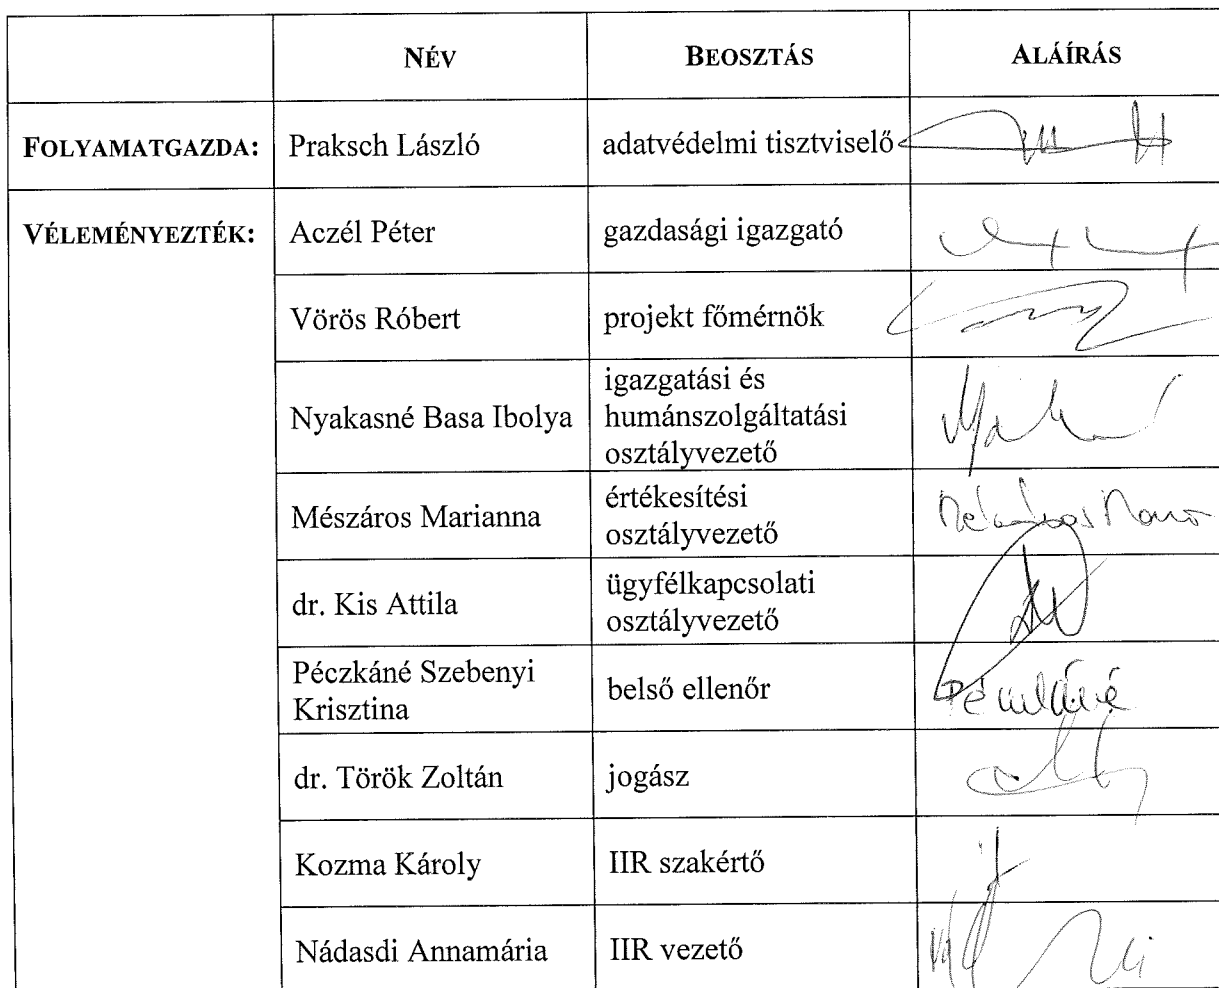 NÉV BEOSZTÁS ALÁÍRÁS
FOLYAMATGAZDA: Praksch László adatvédelmi tisztviselő
VÉLEMÉNYEZTÉK: Aczél Péter gazdasági igazgató
Vörös Róbert projekt főmérnök
igazgatási és
Nyakasné Basa Ibolya humánszolgáltatási
osztályvezető
Mészáros Marianna értékesítési
osztályvezető
dr. Kis Attila ügyfélkapcsolati
osztályvezető
Péczkáné Szebenyi
Krisztina belső ellenőr
dr. Török Zoltán jogász
Kozma Károly IIR szakértő
Nádasdi Annamária IIR vezető